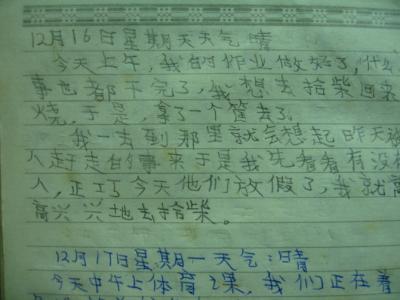 12月16日星期天天气晴
今天上午，我的作业做好了，什么
事也都干完了，我想去拾柴回来
烧，于是，拿了一个筐去了。
我一去到那里就会想起昨天被
人赶走的事来于是我先看看有没有
人，正巧今天他们放假了，我就高
高兴兴地去拾柴。
12月17日星期一天气：晴
今天中午上体育课，我们正在看